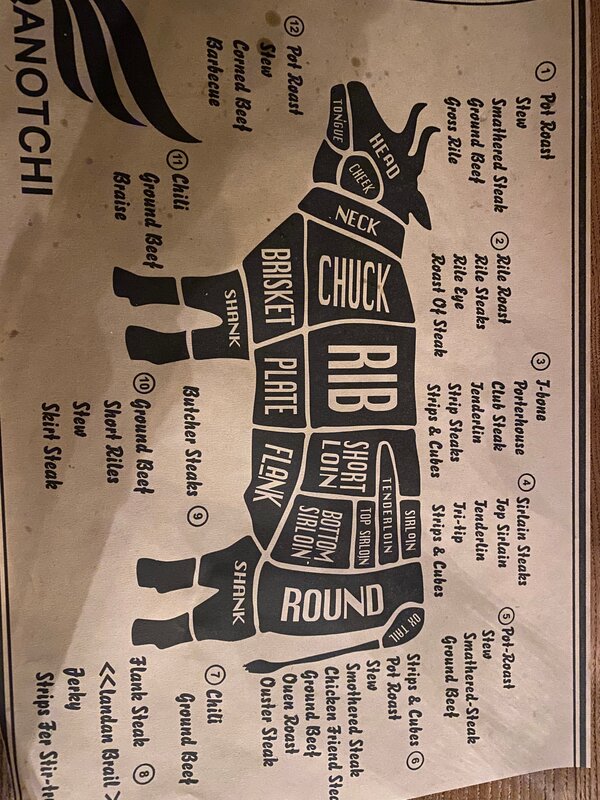 QANOTCHI
① Pot Roast
Stew
Smathered Steak
Ground Beef
Gross Rile
② Rile Roast
Rile Steaks
Rile Eye
Roast Of Steak
③ T-bone
Porterhouse
Club Steak
Tenderlin
Strip Steaks
Strips & Cubes
④ Sirlain Steaks
Top Sirlain
Tenderlin
Tri-tip
Strips & Cubes
⑤ Pot-Roast
Stew
Smathered-Steak
Ground Beef
Strips & Cubes ⑥
Pot Roast
Stew
Smothered Steak
Chicken Friend
Ground Beef
Ouen Roast
Ouster Steak
⑦ Chili
Ground Beef
Flank Steak ⑧
<<landan Brail >
Jerky
Strips Fer
Butcher Steaks ⑨
⑩ Ground Beef
Short Riles
Stew
Skirt Steak
⑪ Chili
Ground Beef
Braise
⑫ Pot Roast
Stew
Corned Beef
Barbecue
TONGUE
HEAD
CHEEK
NECK
CHUCK
BRISKET
SHANK
RIB
PLATE
SHORT
LOIN
FLANK
TENDERLOIN
SIRLOIN
TOP SIRLOIN
BOTTOM
SIRLOIN
ROUND
SHANK
OX TAIL